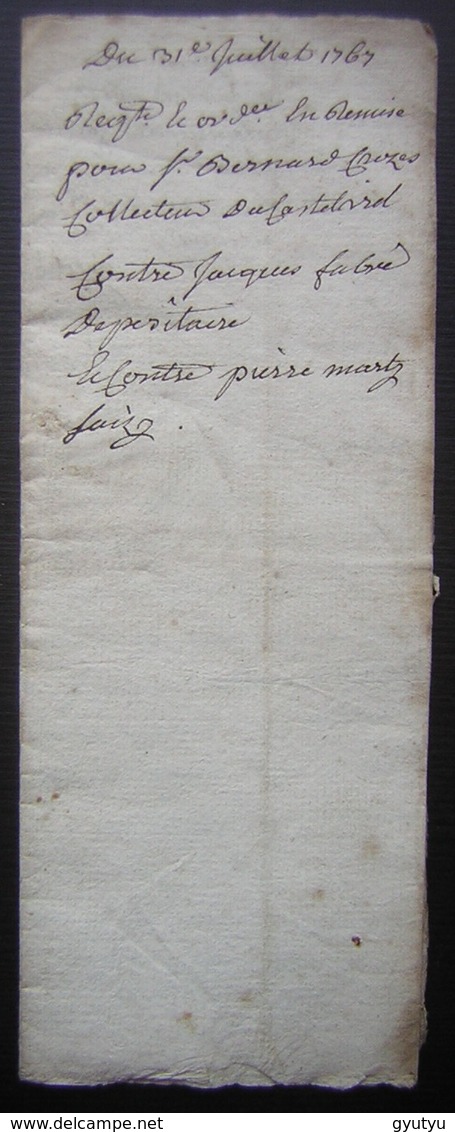 Du 31e Juillet 1767
Reqte et ordce En Remise
pour sr Bernard Crozes
Collecteur Du Castelvird
Contre Jacques fabre
Depositaire
et Contre pierre martz
saizy .
gyutyu